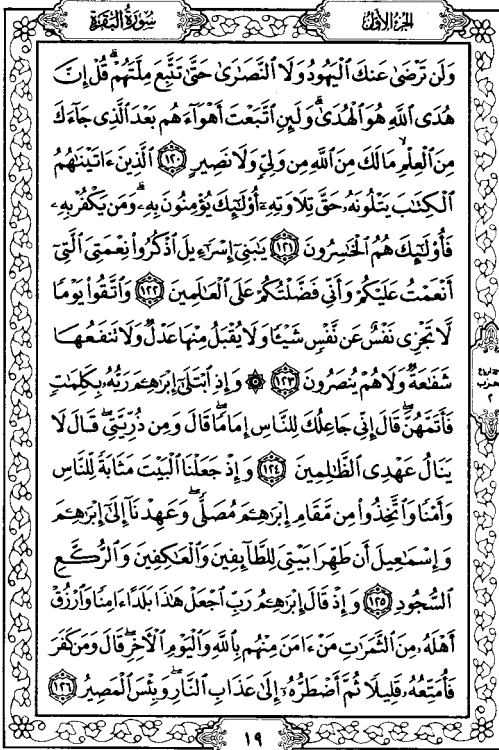 سُورَةُ البَقَرَةِ
الجزء الأول
وَلَن تَرْضَىٰ عَنكَ ٱلْيَهُودُ وَلَا ٱلنَّصَٰرَىٰ حَتَّىٰ تَتَّبِعَ مِلَّتَهُمْ ۗ قُلْ إِنَّ
هُدَى ٱللَّهِ هُوَ ٱلْهُدَىٰ ۗ وَلَئِنِ ٱتَّبَعْتَ أَهْوَآءَهُم بَعْدَ ٱلَّذِى جَآءَكَ
مِنَ ٱلْعِلْمِ ۙ مَا لَكَ مِنَ ٱللَّهِ مِن وَلِىٍّ وَلَا نَصِيرٍ ١٢٠ ٱلَّذِينَ ءَاتَيْنَٰهُمُ
ٱلْكِتَٰبَ يَتْلُونَهُۥ حَقَّ تِلَاوَتِهِۦٓ أُو۟لَٰٓئِكَ يُؤْمِنُونَ بِهِۦ ۗ وَمَن يَكْفُرْ بِهِۦ
فَأُو۟لَٰٓئِكَ هُمُ ٱلْخَٰسِرُونَ ١٢١ يَٰبَنِىٓ إِسْرَٰٓءِيلَ ٱذْكُرُوا۟ نِعْمَتِىَ ٱلَّتِىٓ
أَنْعَمْتُ عَلَيْكُمْ وَأَنِّى فَضَّلْتُكُمْ عَلَى ٱلْعَٰلَمِينَ ١٢٢ وَٱتَّقُوا۟ يَوْمًا
لَّا تَجْزِى نَفْسٌ عَن نَّفْسٍ شَيْـًٔا وَلَا يُقْبَلُ مِنْهَا عَدْلٌ وَلَا تَنفَعُهَا
شَفَٰعَةٌ وَلَا هُمْ يُنصَرُونَ ١٢٣ ۞ وَإِذِ ٱبْتَلَىٰٓ إِبْرَٰهِـۧمَ رَبُّهُۥ بِكَلِمَٰتٍ
فَأَتَمَّهُنَّ ۖ قَالَ إِنِّى جَاعِلُكَ لِلنَّاسِ إِمَامًا ۖ قَالَ وَمِن ذُرِّيَّتِى ۖ قَالَ لَا
يَنَالُ عَهْدِى ٱلظَّٰلِمِينَ ١٢٤ وَإِذْ جَعَلْنَا ٱلْبَيْتَ مَثَابَةً لِّلنَّاسِ
وَأَمْنًا وَٱتَّخِذُوا۟ مِن مَّقَامِ إِبْرَٰهِـۧمَ مُصَلًّى ۖ وَعَهِدْنَآ إِلَىٰٓ إِبْرَٰهِـۧمَ
وَإِسْمَٰعِيلَ أَن طَهِّرَا بَيْتِىَ لِلطَّآئِفِينَ وَٱلْعَٰكِفِينَ وَٱلرُّكَّعِ
ٱلسُّجُودِ ١٢٥ وَإِذْ قَالَ إِبْرَٰهِـۧمُ رَبِّ ٱجْعَلْ هَٰذَا بَلَدًا ءَامِنًا وَٱرْزُقْ
أَهْلَهُۥ مِنَ ٱلثَّمَرَٰتِ مَنْ ءَامَنَ مِنْهُم بِٱللَّهِ وَٱلْيَوْمِ ٱلْءَاخِرِ ۖ قَالَ وَمَن كَفَرَ
فَأُمَتِّعُهُۥ قَلِيلًا ثُمَّ أَضْطَرُّهُۥٓ إِلَىٰ عَذَابِ ٱلنَّارِ ۖ وَبِئْسَ ٱلْمَصِيرُ ١٢٦
حزب
٢
١٩